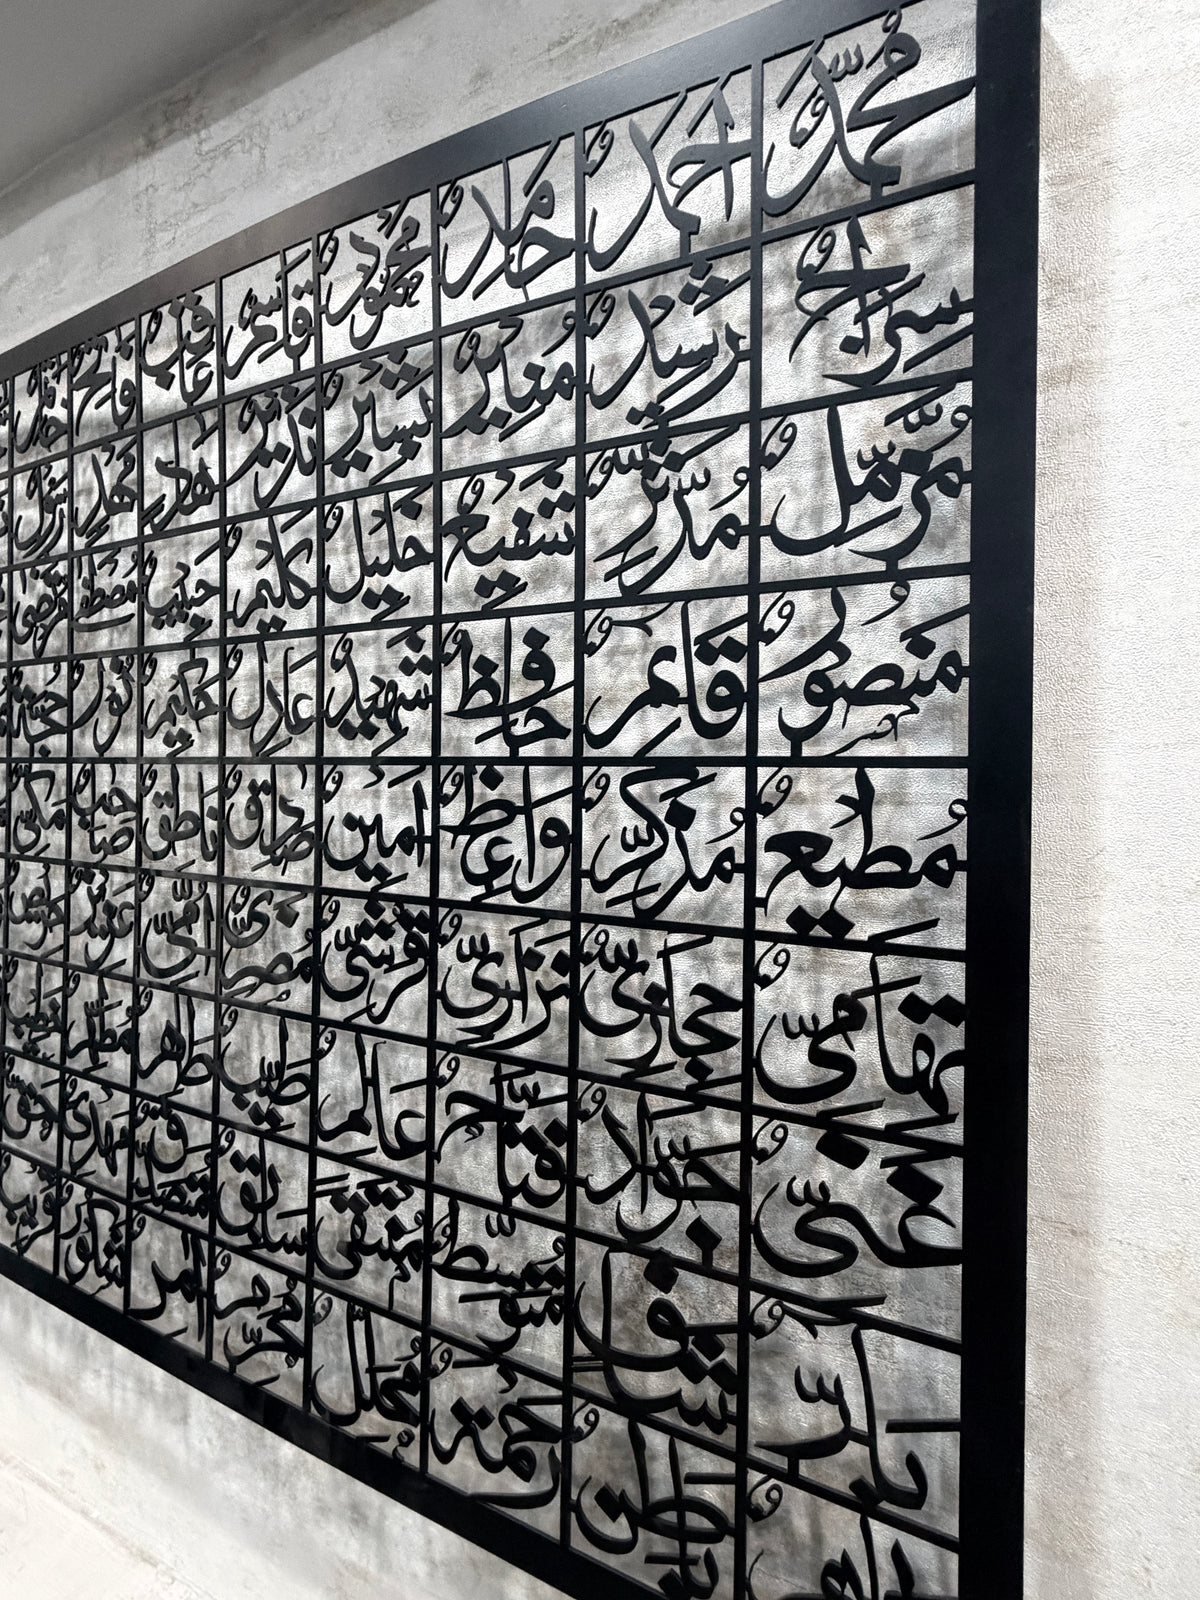 مُحَمَّدٌ اَحْمَدُ حَامِدٌ مَحْمُوْدٌ قَاسِمٌ عَاقِبٌ فَاتِحٌ
سِرَاجٌ رَشِيْدٌ مُنِيْرٌ بَشِيْرٌ نَذِيْرٌ هَادٍ مَهْدٍ رَسُوْلٌ
مُزَّمِّلٌ مُدَّثِّرٌ شَفِيْعٌ خَلِيْلٌ كَلِيْمٌ حَبِيْبٌ مُصْطَفٰى مُرْتَضٰى
مَنْصُوْرٌ قَائِمٌ حَافِظٌ شَهِيْدٌ عَادِلٌ حَكِيْمٌ نُوْرٌ حُجَّةٌ
مُطِيْعٌ مُذَكِّرٌ وَاعِظٌ اَمِيْنٌ صَادِقٌ نَاطِقٌ صَاحِبٌ مَكِّيٌّ
تِهَامِيٌّ حِجَازِيٌّ نِزَارِيٌّ قُرَشِيٌّ مُضَرِيٌّ اُمِّيٌّ عَزِيْزٌ
غَنِيٌّ جَوَّادٌ فَتَّاحٌ عَالِمٌ طَيِّبٌ طَاهِرٌ مُطَهَّرٌ
بَارٌّ شَافٍ مُتَوَسِّطٌ سَابِقٌ مُتَصَدِّقٌ مَهْدِيٌّ حَقٌّ
بَاطِنٌ رَحْمَةٌ مُحَلِّلٌ مُحَرِّمٌ اٰمِرٌ شَكُوْرٌ قَرِيْبٌ